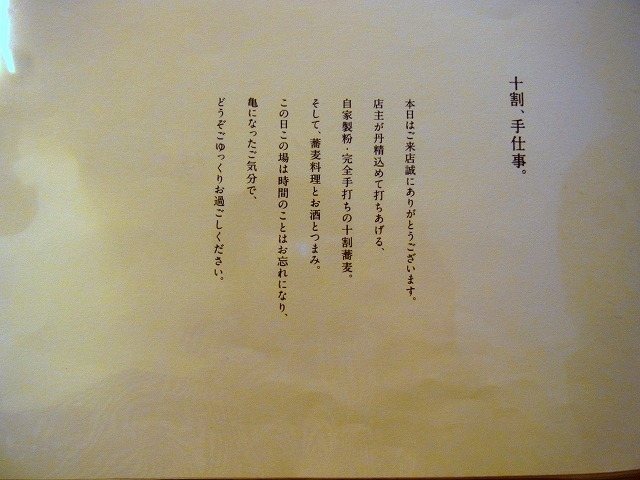 十割、手仕事。
本日はご来店誠にありがとうございます。
店主が丹精込めて打ちあげる、
自家製粉・完全手打ちの十割蕎麦。
そして、蕎麦料理とお酒とつまみ。
この日この場は時間のことはお忘れになり、
亀になったご気分で、
どうぞごゆっくりお過ごしください。